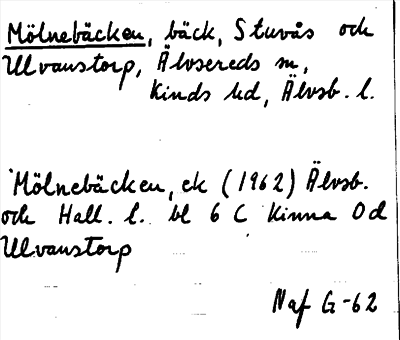 Mölnebäcken, bäck, Stuvås och
Ulvanstorp, Älvsereds sn,
Kinds hd, Älvsb. l.
Mölnebäcken, ek (1962) Älvsb.
och Hall. l. bl 6 C Kinna Od
Ulvanstorp
Naf G-62